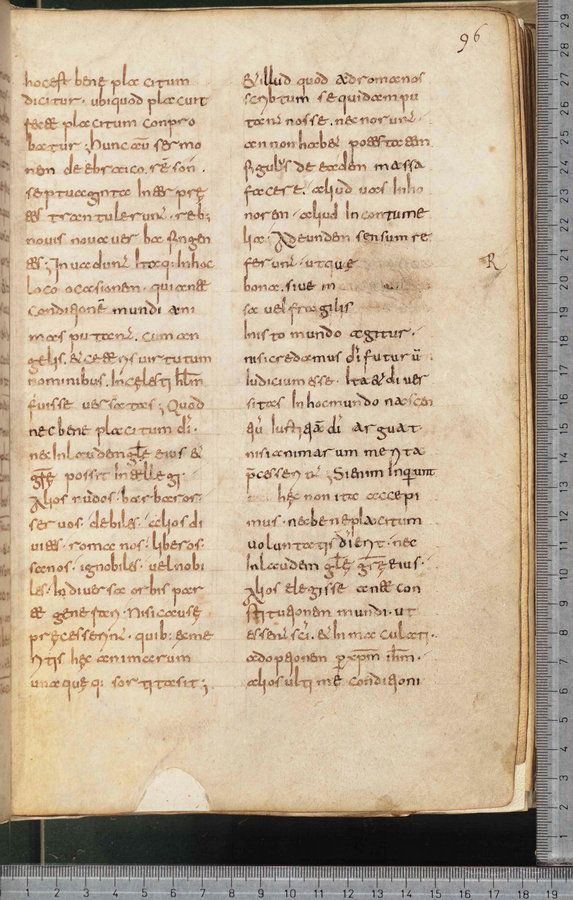 96
hoc est bene placitum
dicitur. ubi quod placuit
placitum conpro
batur; hunc au sermo
nem de ebraico. rẽ son.
septuaginta inter prę
tes transtulerunt. reb;
novis nova ver ba fingen
tes; Invadunt itaq: in hoc
loco occasionem. qui ante
condicionẽ mundi ani
mas putant. cum an
gelis. et ceteris virtutum
nominibus. In celesti hrlm
fuisse versatas; Quod
nec bene placitum di.
nec in laudem glę eius et
grę possit intellegi.
Alios nudos. barbaros.
servos. debiles. alios di
vites. romanos. liberos.
sanos. ignobiles. vel nobi
les. In diversa orbis par
te generari. Nisi causę
pręcesserint. quib: ex me
ritis hęc animarum
una quęq: sortita sit;
Et illud quod ad romanos
scribtum se quidam pu
tant nosse. nec norunt.
an non habet potestatem
figulus de eadem massa
facere. aliud vas in ho
norem. aliud in contume
liã. Ad eundem sensum re
ferunt. utque
bona. sive m
sa vel fragilis
In isto mundo agitur.
nisi credamus di futurũ
Iudicium esse. Ita et diver
sitas in hoc mundo nascen
tiũ. Iustitiã di arguat.
nisi animarum merita
pcesserint; Si enim inquiunt
hęc non ita accepi
mus. nec bene placitum
voluntatis di erit. nec
In laudem glę grę eius.
Alios elegisse ante con
stitutionem mundi. ut
essent sci. et inmaculati.
adoptionem p xpm ihm.
alios ultime condicioni
R